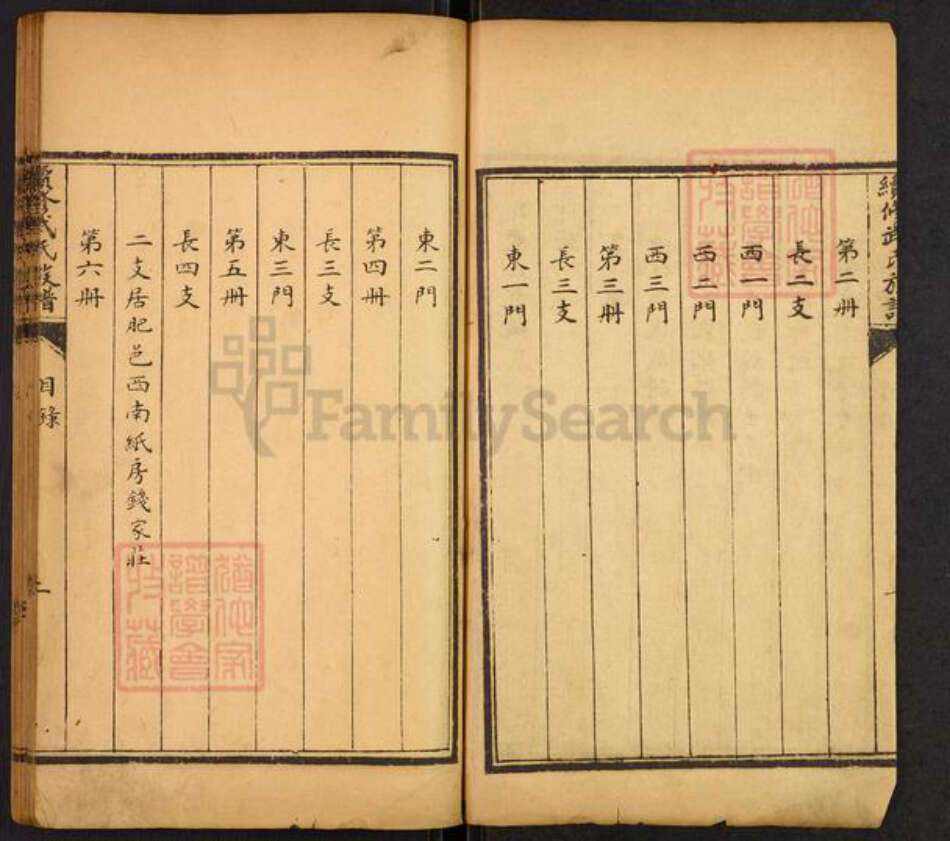 續修武氏族譜
第二册
長二支
西一門
西二門
西三門
第三册
長三支
東一門
東二門
第四册
長三支
東三門
第五册
長四支
二支居肥邑西南紙房錢家莊
第六册
續修武氏族譜
目錄
猶他家譜學會特藏
猶他家譜學會特藏
FamilySearch